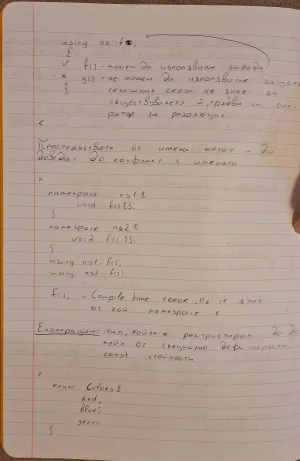 using ns f();
{
✓ f() - можем да използваме заради
x g() - не можем да използваме защото
} сегашния скоп не знае за
съществуването й, трябва и опе-
ратор за резолюция
Пространствата от имена могат да
доведат до конфликт с имената
namespace ns1 {
void f(){};
}
namespace ns2 {
void f(){};
}
using ns1::f();
using ns2::f();
f(); - Compile time error. Не се знае
от кой namespace е
Енумерации: тип, който е рестриктиран до
от специално дефинирани
const стойности
enum Colors {
red,
blue,
green
}